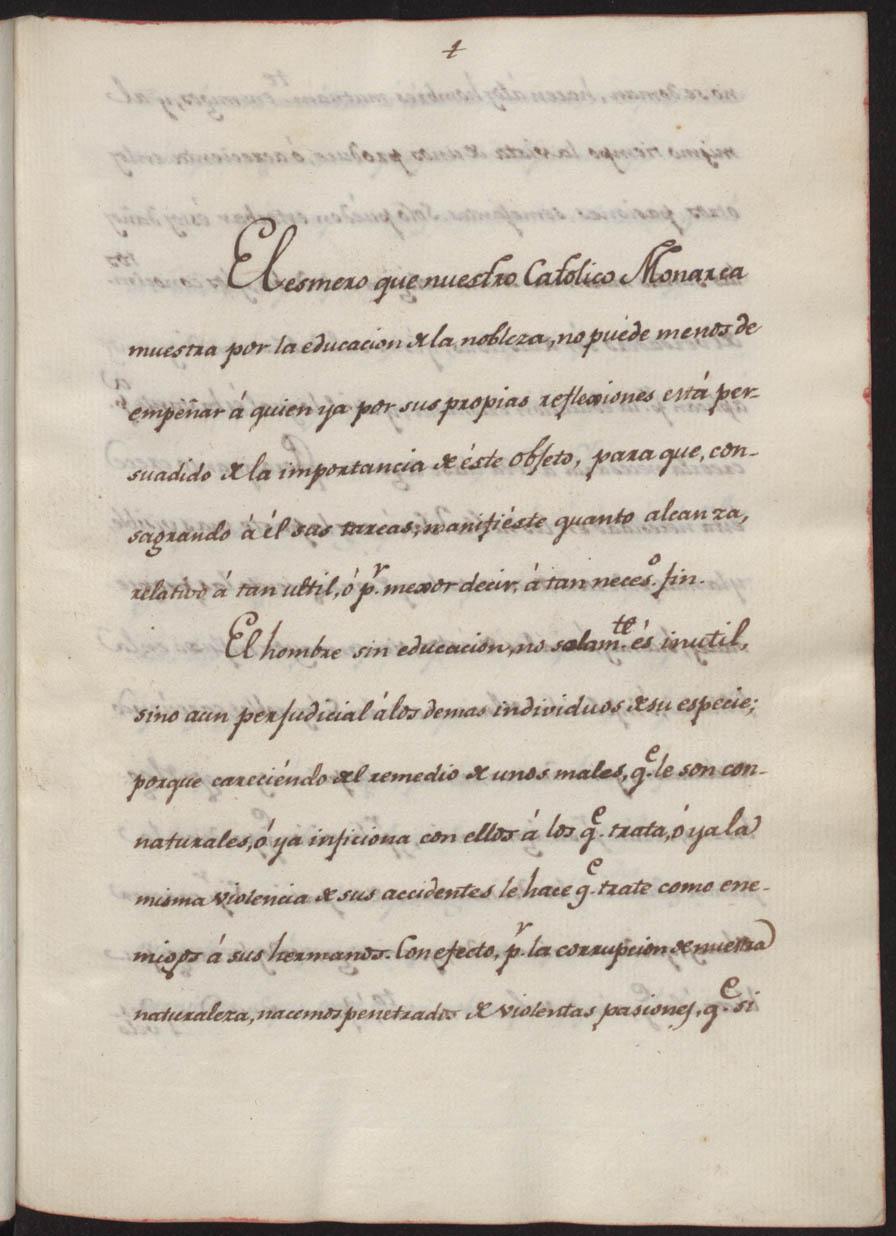 1
El esmero que nuestro Catolico Monarca
muestra por la educacion de la nobleza, no puéde menos de
empeñar á quien ya por sus propias reflexiones está per-
suadido de la importancia de éste objeto, para que, con-
sagrando á él sus tareas, manifiéste quanto alcanza,
relativo á tan util, ó p.r mexor decir, á tan neces.o fin.
El hombre sin educacion, no solam.te és inutil,
sino aun perjudicial á los demas individuos de su especie;
porque careciéndo del remedio de unos males, q.e le son con-
naturales, ó ya inficiona con ellos á los q.e trata, ó ya la
misma violencia de sus accidentes le hace q.e trate como ene-
migos á sus hermanos. Con efecto, p.r la corrupcion de nuestra
naturaleza, nacemos penetrados de violentas pasiones, q.e si